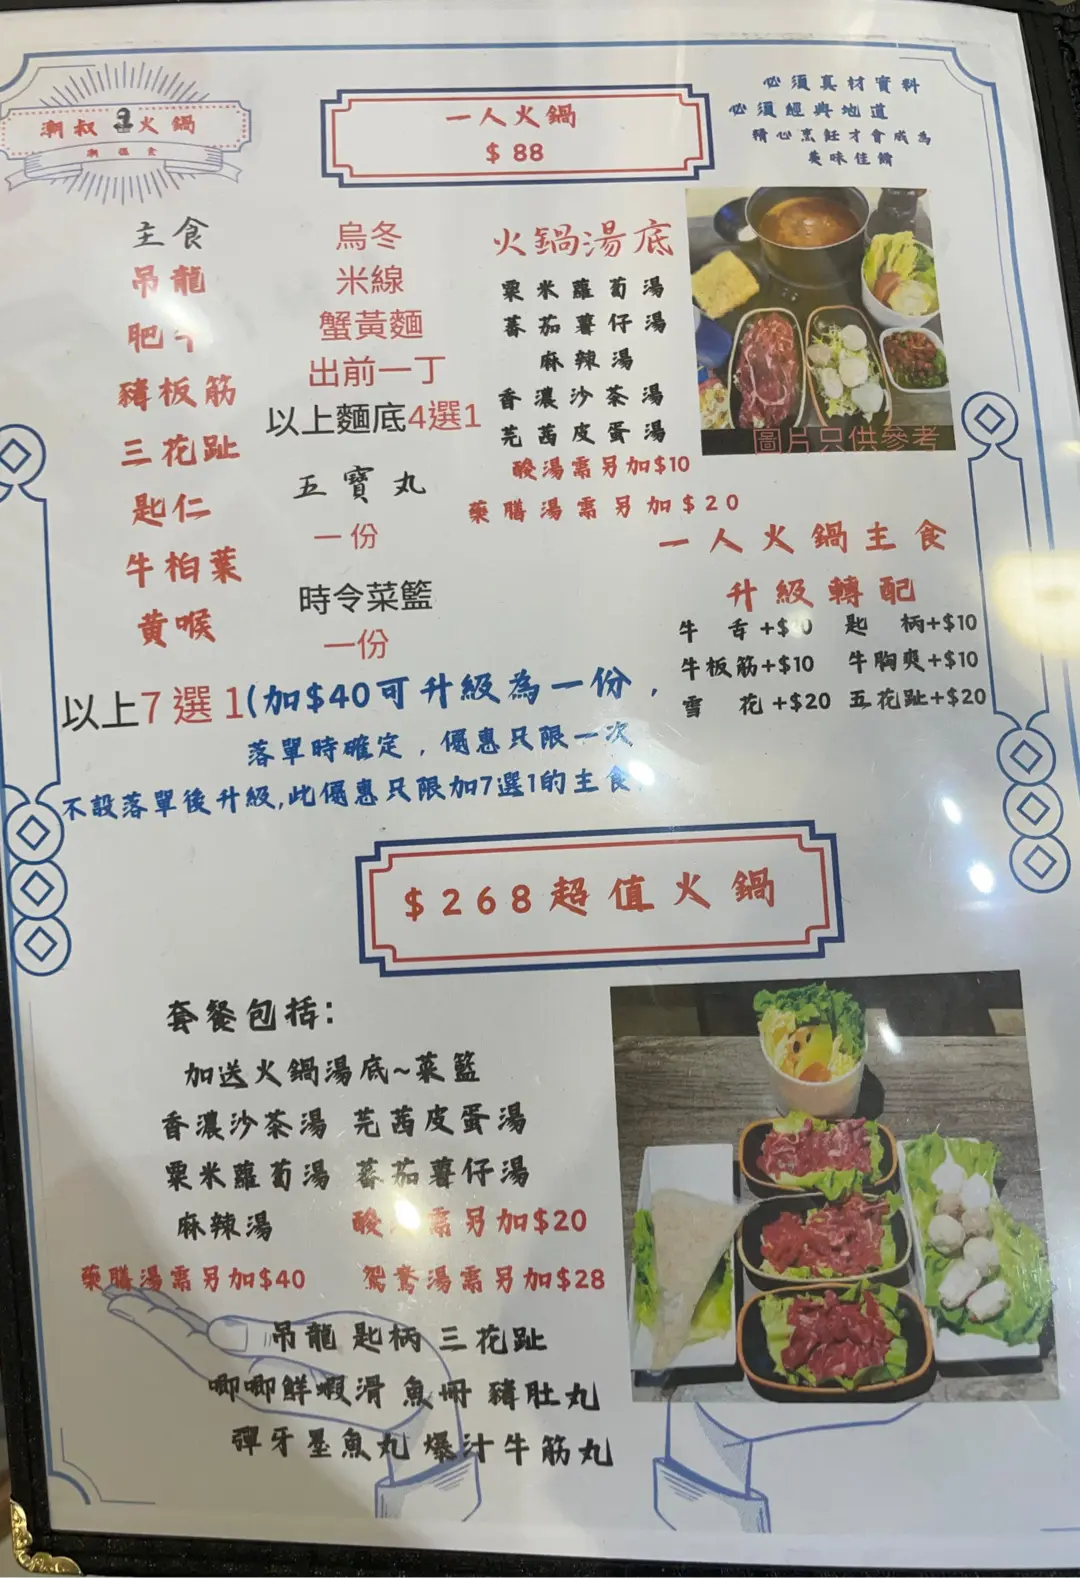 潮叔 火鍋
一人火鍋
$ 88
必須真材實料
必須經典地道
精心烹飪才會成為
美味佳餚
主食
吊龍
肥牛
豬板筋
三花趾
匙仁
牛柏葉
黃喉
以上7選1(加$40可升級為一份，
落單時確定，優惠只限一次
不設落單後升級,此優惠只限加7選1的主食
烏冬
米線
蟹黃麵
出前一丁
以上麵底4選1
五寶丸
一份
時令菜籃
一份
火鍋湯底
粟米蘿蔔湯
蕃茄薯仔湯
麻辣湯
香濃沙茶湯
芫茜皮蛋湯
酸湯需另加$10
藥膳湯需另加$20
圖片只供參考
一人火鍋主食
升級轉配
牛舌+$ 0 匙柄+$10
牛板筋+$10 牛胸爽+$10
雪花+$20 五花趾+$20
$268超值火鍋
套餐包括:
加送火鍋湯底~菜籃
香濃沙茶湯 芫茜皮蛋湯
粟米蘿蔔湯 蕃茄薯仔湯
麻辣湯 酸 需另加$20
藥膳湯需另加$40 鴛鴦湯需另加$28
吊龍 匙柄 三花趾
唧唧鮮蝦滑 魚冊 豬肚丸
彈牙墨魚丸 爆汁牛筋丸